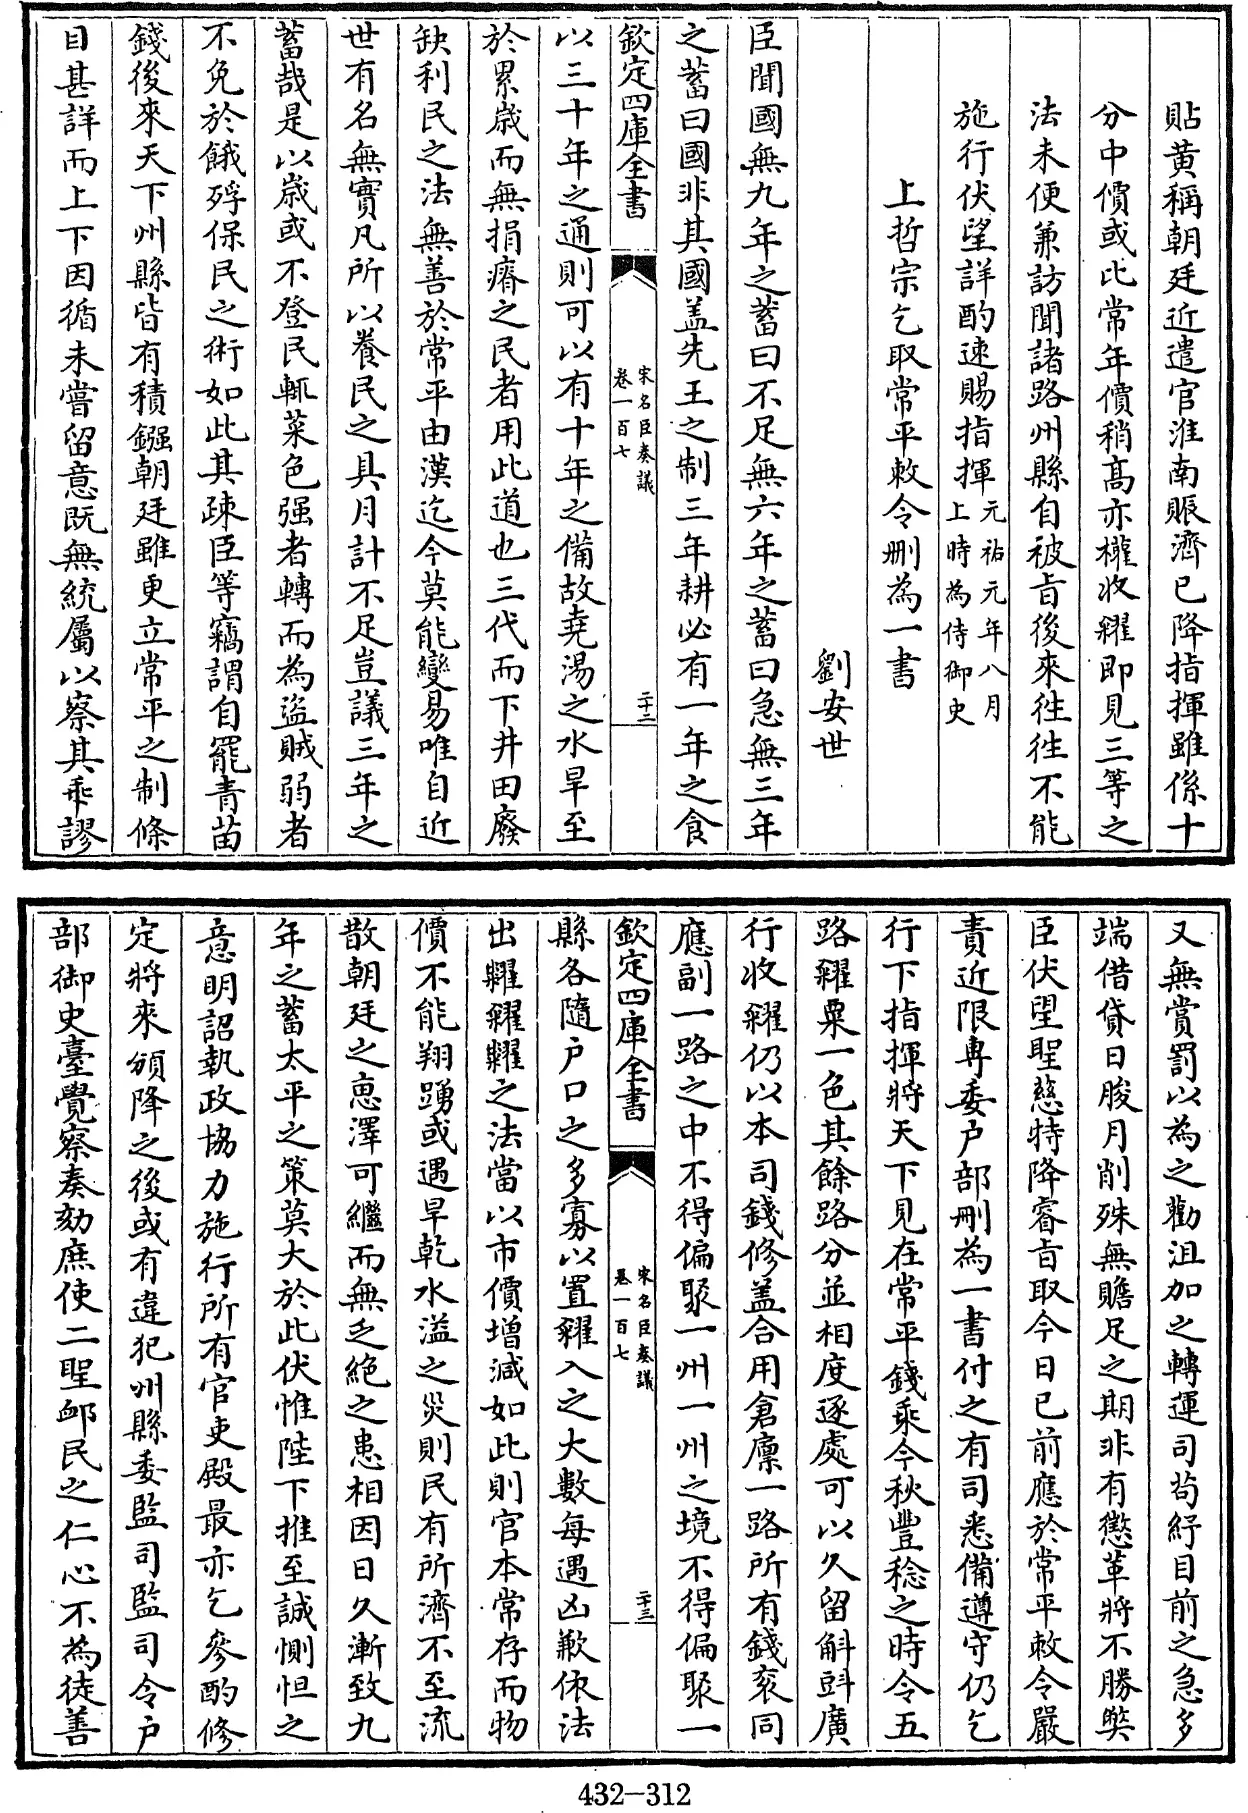 貼黄稱朝廷近遣官淮南賑濟已降指揮雖係十
分中價或比常年價稍髙亦權收糴即見三等之
法未便兼訪聞諸路州縣自被㫖後來徃徃不能
施行伏望詳酌速賜指揮元祐元年八月上時為侍御史
上哲宗乞取常平敕令刪為一書
劉安世
臣聞國無九年之蓄曰不足無六年之蓄曰急無三年
之蓄曰國非其國盖先王之制三年耕必有一年之食
欽定四庫全書
宋名臣奏議
卷一百七
二十二
以三十年之通則可以有十年之備故堯湯之水旱至
於累歳而無捐瘠之民者用此道也三代而下井田廢
缺利民之法無善於常平由漢迄今莫能變易唯自近
世有名無實凡所以養民之具月計不足豈議三年之
蓄哉是以歳或不登民輒菜色强者轉而為盜賊弱者
不免於餓殍保民之術如此其疎臣等竊謂自罷青苗
錢後來天下州縣皆有積鏹朝廷雖更立常平之制條
目甚詳而上下因循未嘗留意既無統屬以察其乖謬
又無賞罰以為之勸沮加之轉運司苟紓目前之急多
端借貸日朘月削殊無贍足之期非有懲革將不勝弊
臣伏望聖慈特降睿㫖取今日已前應於常平敕令嚴
責近限専委户部刪為一書付之有司悉備遵守仍乞
行下指揮將天下見在常平錢乘今秋豐稔之時令五
路糴粟一色其餘路分並相度逐處可以久留斛㪷廣
行收糴仍以本司錢修盖合用倉廪一路所有錢衮同
應副一路之中不得偏聚一州一州之境不得偏聚一
欽定四庫全書
宋名臣奏議
卷一百七
二十三
縣各隨户口之多寡以置糴入之大數每遇凶歉依法
出糶糴糶之法當以市價增減如此則官本常存而物
價不能翔踴或遇旱乾水溢之災則民有所濟不至流
散朝廷之恵澤可繼而無乏絶之患相因日久漸致九
年之蓄太平之策莫大於此伏惟陛下推至誠惻怛之
意明詔執政協力施行所有官吏殿最亦乞參酌修
定將來頒降之後或有違犯州縣委監司監司令户
部御史臺覺察奏劾庶使二聖卹民之仁心不為徒善
432-312